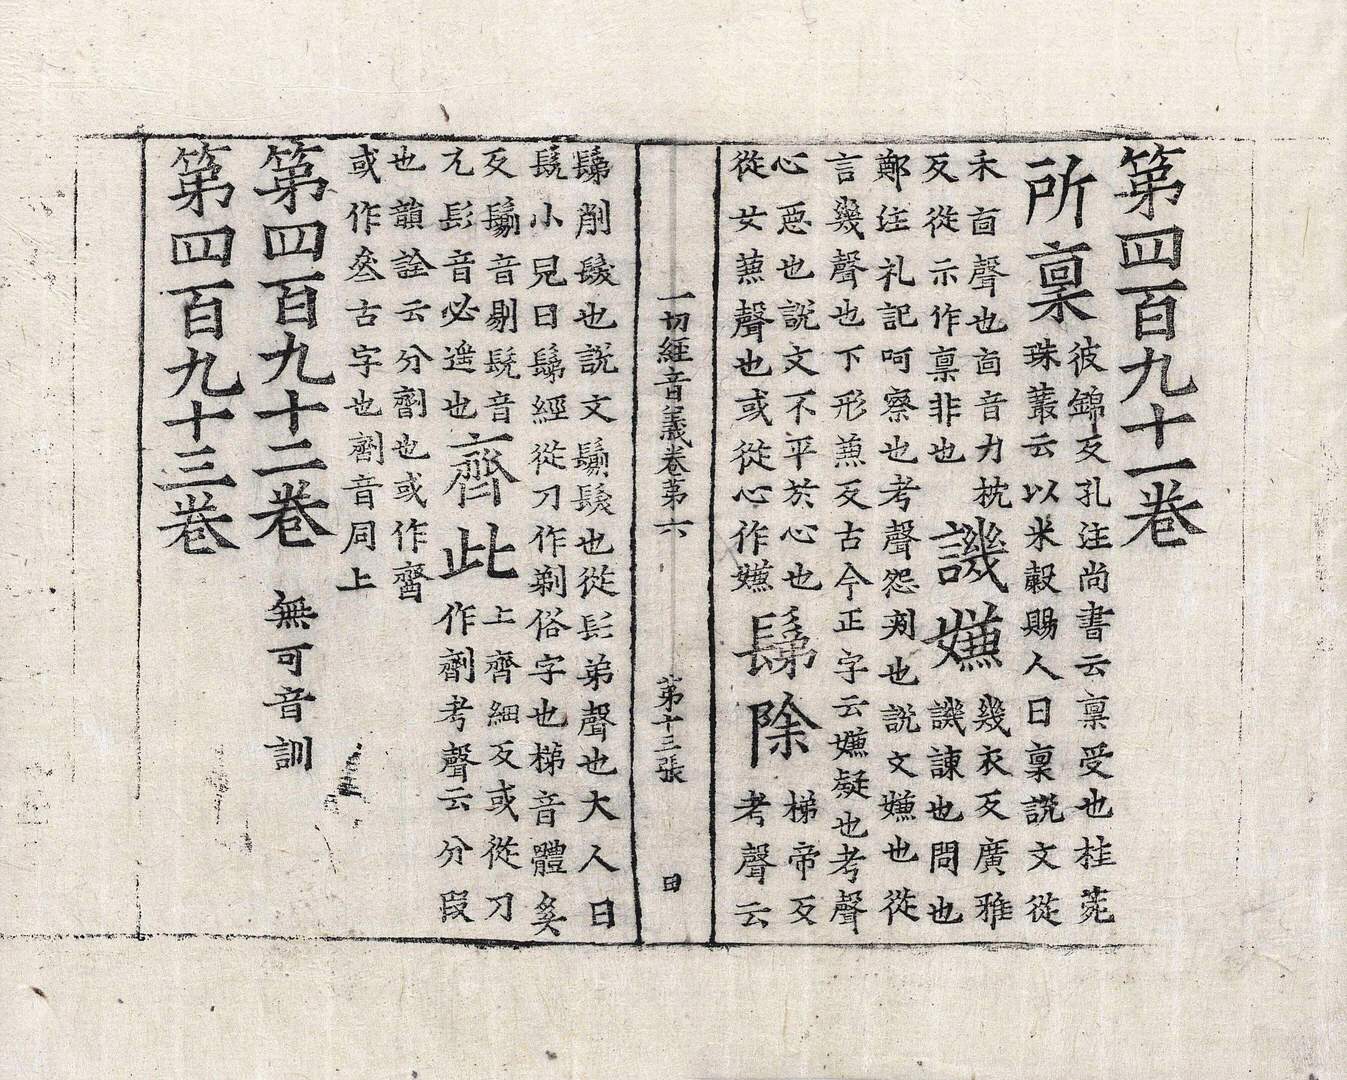 第四百九十一卷
所稟 彼錦反孔注尚書云稟受也桂菀
珠叢云以米糓賜人曰稟說文從
禾㐭聲也㐭音力枕
反從示作禀非也
譏嫌 幾衣反廣雅
譏諫也問也
鄭注礼記呵察也考聲怨刾也說文嫌也從
言幾聲也下形蒹反古今正字云嫌疑也考聲
心惡也說文不平於心也
從女蒹聲也或從心作㜕
鬀除 梯帝反
考聲云
一切經音義卷第六 第十三張 田
鬀削髮也說文鬄髮也從髟弟聲也大人曰
髡小兒曰鬀經從刀作剃俗字也梯音體奚
反鬄音剔髡音
兀髟音必遙也
齊此 上齊細反或從刀
作劑考聲云分段
也韻詮云分劑也或作齌
或作㕘古字也劑音同上
第四百九十二卷 無可音訓
第四百九十三卷